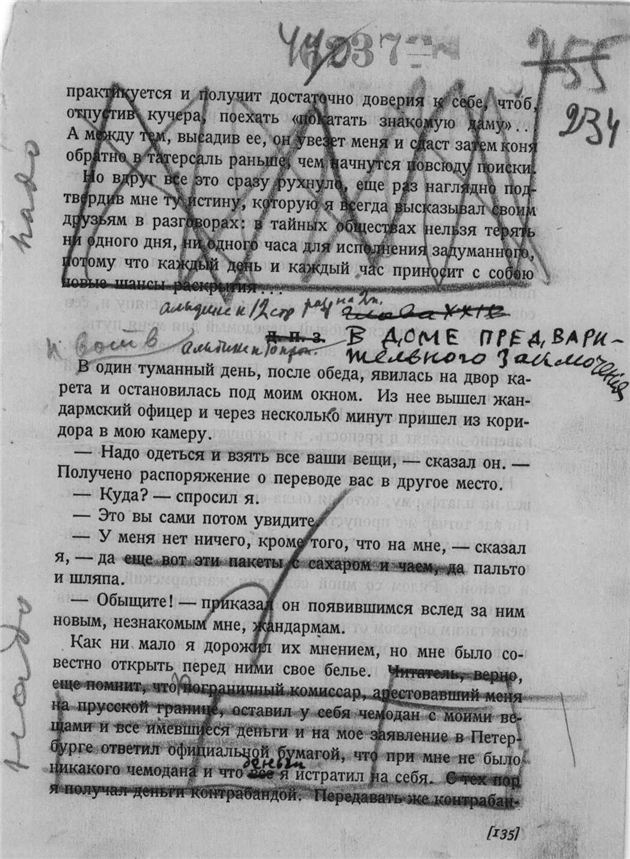 440
6237
755
234
практикуется и получит достаточно доверия к себе, чтоб,
отпустив кучера, поехать «покатать знакомую даму»..
А между тем, высадив ее, он увезет меня и сдаст затем коня
обратно в татерсаль раньше, чем начнутся повсюду поиски.
Но вдруг все это сразу рухнуло, еще раз наглядно под-
твердив мне ту истину, которую я всегда высказывал своим
друзьям в разговорах: в тайных обществах нельзя терять
ни одного дня, ни одного часа для исполнения задуманного,
потому что каждый день и каждый час приносит с собою
новые шансы раскрытия...
надо
12 стр
Глава XXIX
Д. П. З. В ДОМЕ ПРЕДВАРИ-
тельного Заключения
В один туманный день, после обеда, явилась на двор ка-
рета и остановилась под моим окном. Из нее вышел жан-
дармский офицер и через несколько минут пришел из кори-
дора в мою камеру.
— Надо одеться и взять все ваши вещи, — сказал он. —
Получено распоряжение о переводе вас в другое место.
— Куда? — спросил я.
— Это вы сами потом увидите.
— У меня нет ничего, кроме того, что на мне, — сказал
я, — да еще вот эти пакеты с сахаром и чаем, да пальто
и шляпа.
— Обыщите! — приказал он появившимся вслед за ним
новым, незнакомым мне, жандармам.
Как ни мало я дорожил их мнением, но мне было со-
вестно открыть перед ними свое белье. Читатель, верно,
еще помнит, что пограничный комиссар, арестовавший меня
на прусской границе, оставил у себя чемодан с моими ве-
щами и все имевшиеся деньги и на мое заявление в Петер-
бурге ответил официальной бумагой, что при мне не было
деньги
никакого чемодана и что все я истратил на себя. С тех пор
я получал деньги контрабандой. Передавать же контрабан-
надо
[135]